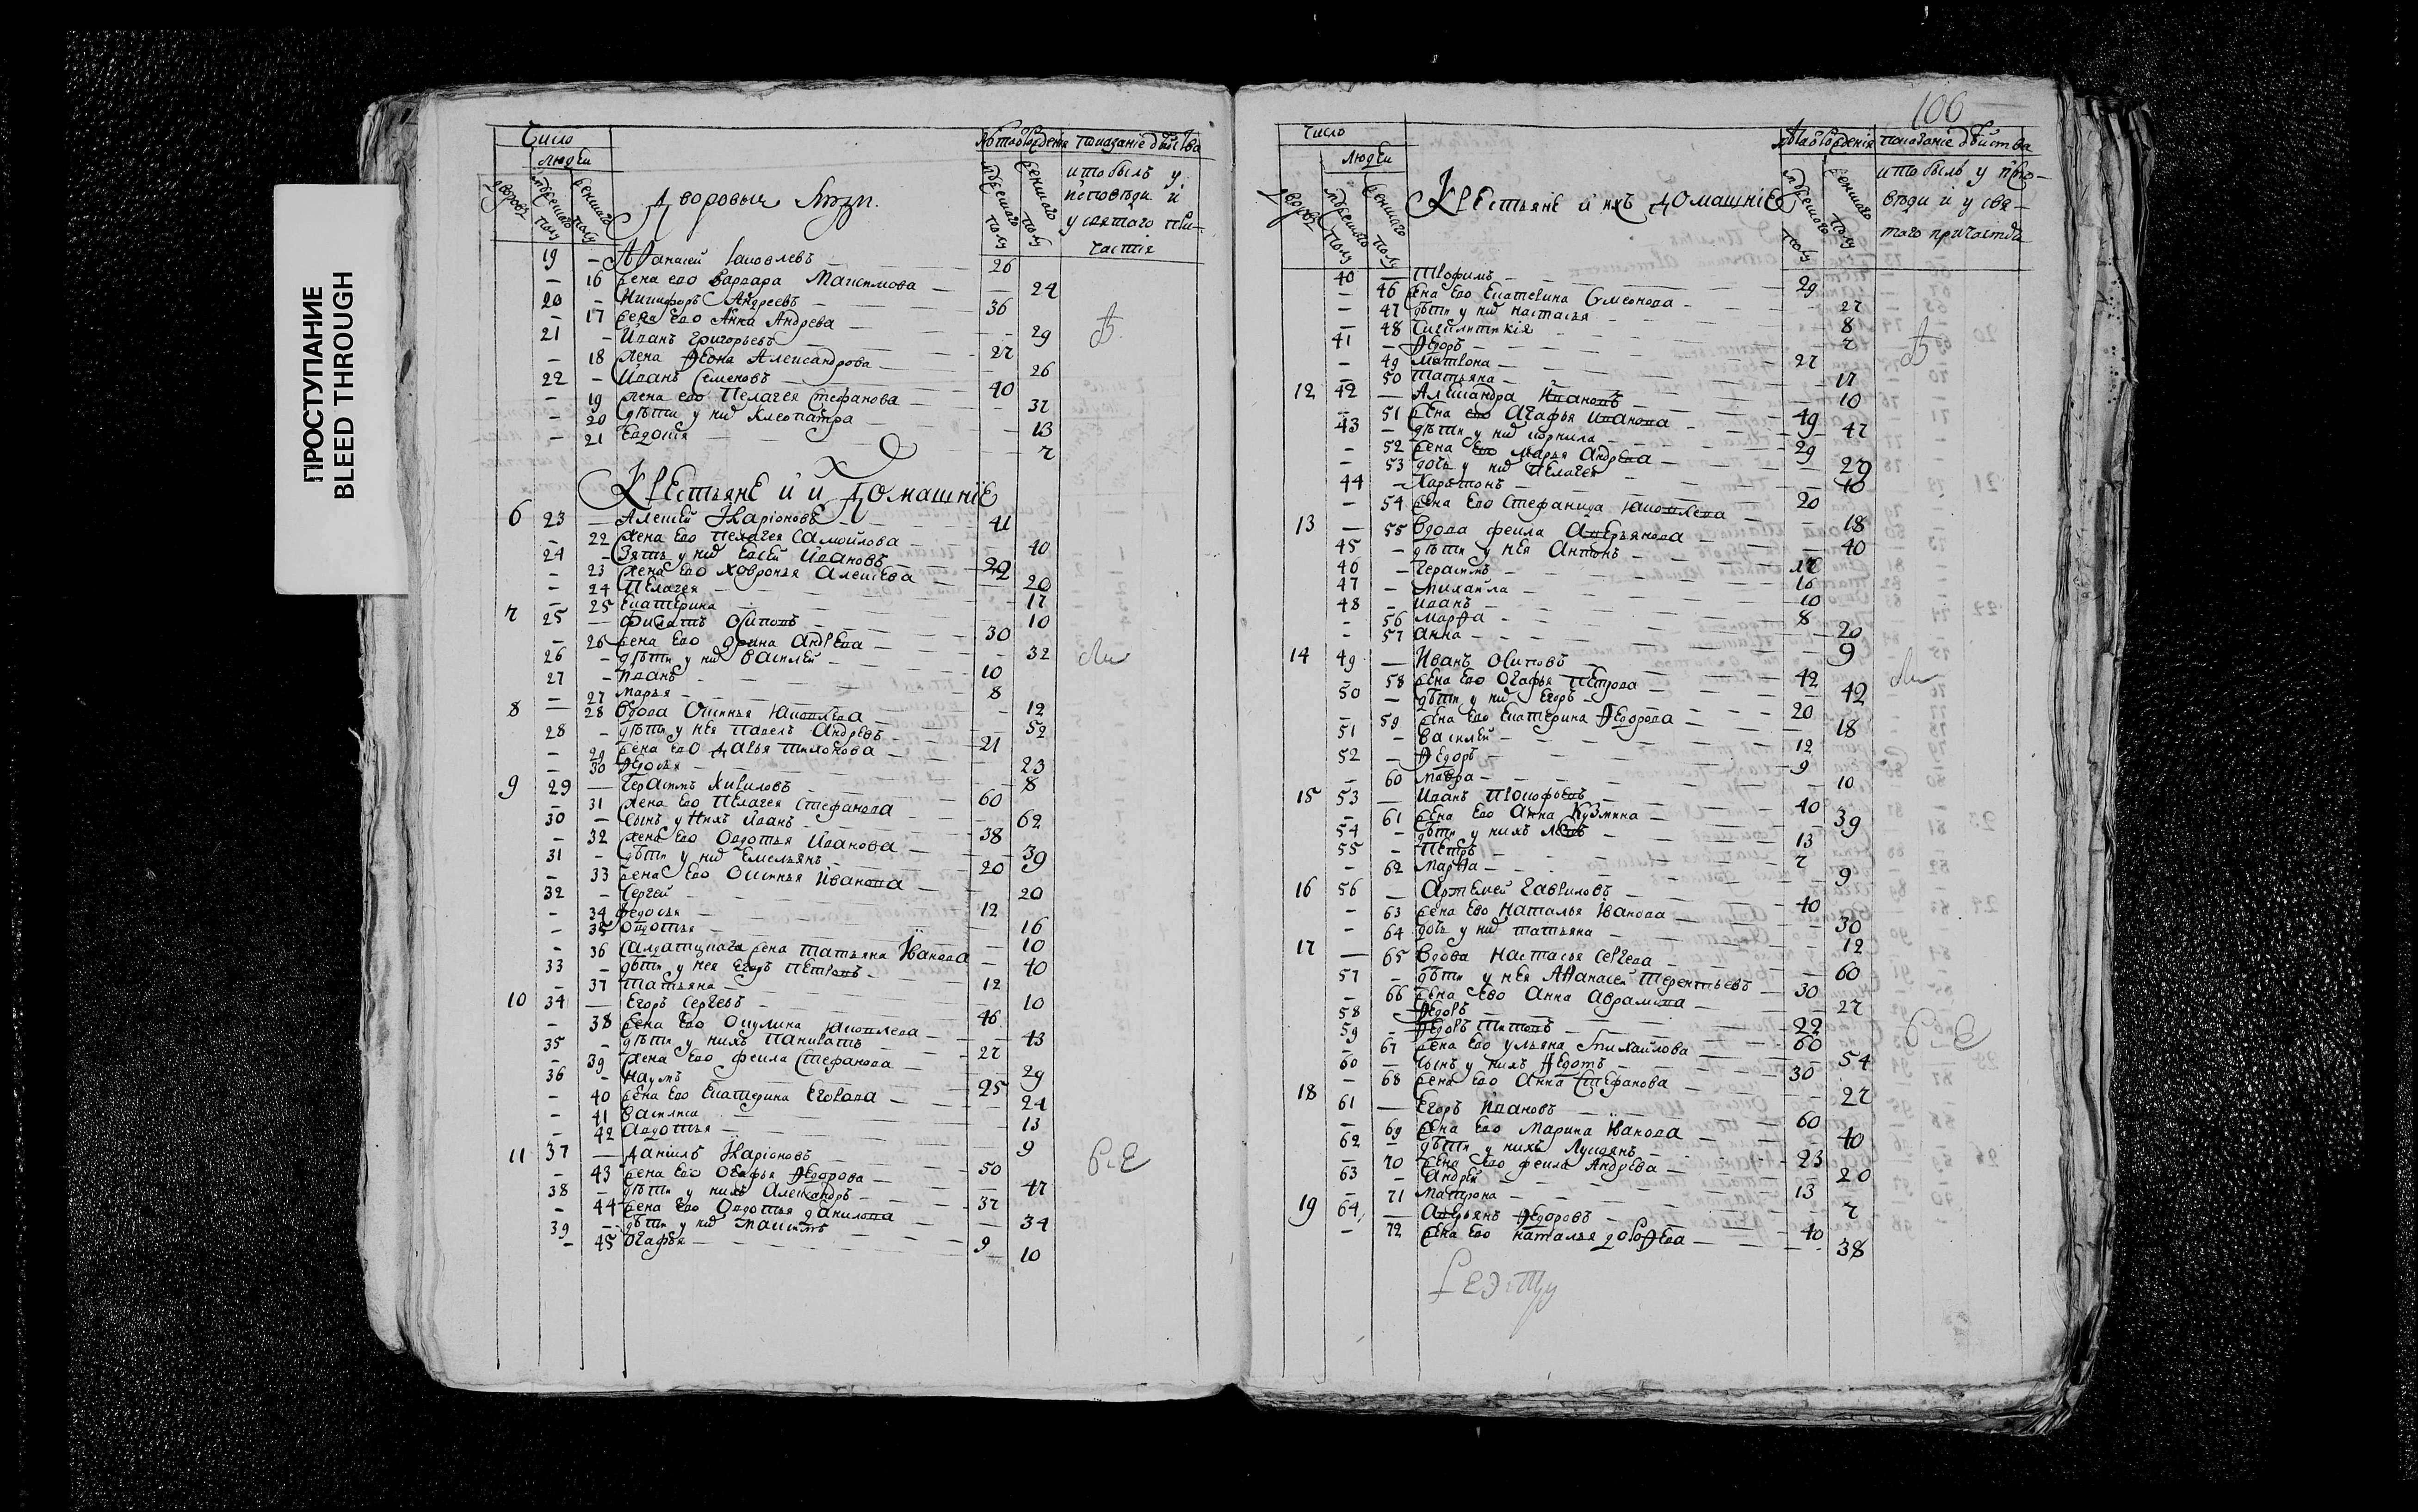 ПРОСТУПАНИЕ
BLEED THROUGH
Число
людей
дворовъ
мужеска полу
женска полу
Дворовыя люди.
показаніе действа
кто былъ у
исповѣди и
у святаго при-
частія
19 - Афанасей Яковлевъ - 26
- 16 жена ево Варвара Максимова - 24
20 - Никифоръ Андреевъ - 36
- 17 жена ево Анна Андрева - 29
21 - Иванъ Григорьевъ - 27
- 18 жена Феона Александрова - 26
22 - Иванъ Семеновъ - 40
- 19 жена ево Пелагея Стефанова - 37
- 20 дѣти у них Клеопатра - 13
- 21 Евдокія - 7
Крестьяне и и домашніе
6 23 - Алексей Иларіоновъ - 41
- 22 жена ево Пелагея Самойлова - 40
24 - Зять у них Евсей Ивановъ - 22
- 23 жена ево Ховронья Алексева - 20
- 24 Пелагея - 17
- 25 Екатерина - 10
7 25 - Филатъ Осиповъ - 30
- 26 жена ево Орина Андрева - 32
26 - дѣти у них Василей - 10
27 - Иванъ - 8
- 27 Марья - 12
8 - 28 Вдова Оксинья Яковлева - 52
28 - дѣти у нея Павелъ Андревъ - 21
- 29 жена ево Дарья Тихонова - 23
- 30 Федосья - 8
9 29 - Герасимъ Кириловъ - 60
- 31 жена ево Пелагея Стефанова - 62
30 - Сынъ у них Иванъ - 38
- 32 жена ево Овдотья Иванова - 39
31 - дѣти у них Емельянъ - 20
- 33 жена ево Оксинья Иванова - 20
32 - Сергей - 12
- 34 Федосья - 16
- 35 Овдотья - 10
- 36 Салдатцкага жена Татьяна Иванова - 40
33 - дѣти у нея Егоръ Петровъ - 12
- 37 Татьяна - 10
10 34 - Егоръ Сергевъ - 46
- 38 жена ево Окулина Яковлева - 43
35 - дѣти у нихъ Панкратъ - 27
- 39 жена ево Фекла Стефанова - 29
36 - Наумъ - 25
- 40 жена ево Екатерина Егорова - 24
- 41 Василиса - 13
- 42 Авдотья - 9
11 37 - Даніилъ Иларіоновъ - 50
- 43 жена ево Огафья Федорова - 47
38 - дѣти у нихъ Александръ - 37
- 44 жена ево Овдотья Данилова - 34
39 - дѣти у них Максимъ - 9
- 45 Огафья - 10
106
Число
людей
дворовъ
мужескаго полу
женскаго полу
Крестьяне и ихъ домашніе
показаніе действа
кто былъ у испо-
вѣди и у свя-
таго причастія
40 - Трофимъ - 29
- 46 жена ево Екатерина Симеонова - 27
- 47 дѣти у них Настасья - 8
- 48 - 7
41 - Федоръ - 27
- 49 Матрона - 17
- 50 Татьяна - 10
12 42 - Александра Ивановъ - 49
- 51 жена ево Агафья Иванова - 47
43 - дѣти у них Корнила - 29
- 52 жена ево Марья Андрева - 29
- 53 дочь у них Пелагея - 10
44 - Харитонъ - 20
- 54 жена ево Стефанида Яковлева - 18
13 - 55 Вдова Фекла Аверьянова - 40
45 - дѣти у нея Антонъ
46 - Герасимъ - 16
47 - Михайла - 10
48 - Иванъ - 8
- 56 Марфа - 20
- 57 Анна - 9
14 49 - Иванъ Осиповъ - 42
- 58 жена ево Огафья Петрова - 42
50 - дѣти у них Егоръ - 20
- 59 жена ево Екатерина Федорова - 18
51 - Василей - 12
52 - Федоръ - 9
- 60 Мавра - 10
15 53 - Иванъ Прокофьевъ - 40
- 61 жена ево Анна Кузмина - 39
54 - дѣти у нихъ Левъ - 13
55 - Петръ - 7
- 62 Марфа - 9
16 56 - Артемей Гавриловъ - 40
- 63 жена ево Наталья Иванова - 30
- 64 дочь у них Татьяна - 12
17 - 65 Вдова Настасья Сергева - 60
57 - дѣти у нея Афанасей Терентьевъ - 30
- 66 жена ево Анна Аврамова - 27
58 - Федоръ - 22
59 - Федоръ Титовъ - 60
- 67 жена ево Ульяна Михайлова - 54
60 - сынъ у нихъ Федотъ - 30
- 68 жена ево Анна Стефанова - 27
18 61 - Егоръ Ивановъ - 60
- 69 жена ево Марина Иванова - 40
62 - дѣти у нихъ Лукьянъ - 23
- 70 жена ево Фекла Андрева - 20
63 - Андрей - 13
- 71 Матрона - 7
19 64 - Аверьянъ Федоровъ - 40
- 72 жена ево Наталья Дорофева - 38